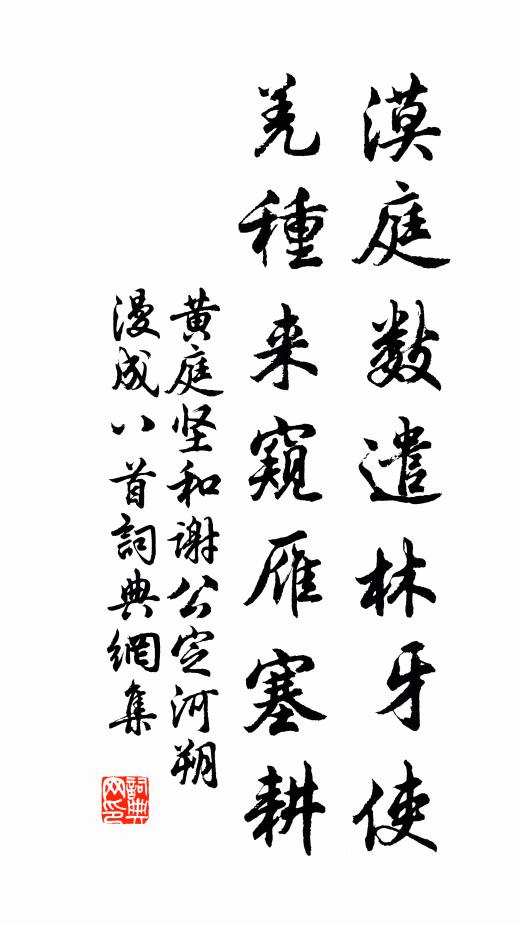 漠庭数遣林牙使
羌種来窺雁塞耕
黄庭坚和谢公定河朔
漫成八首詞典網集
詞典网印